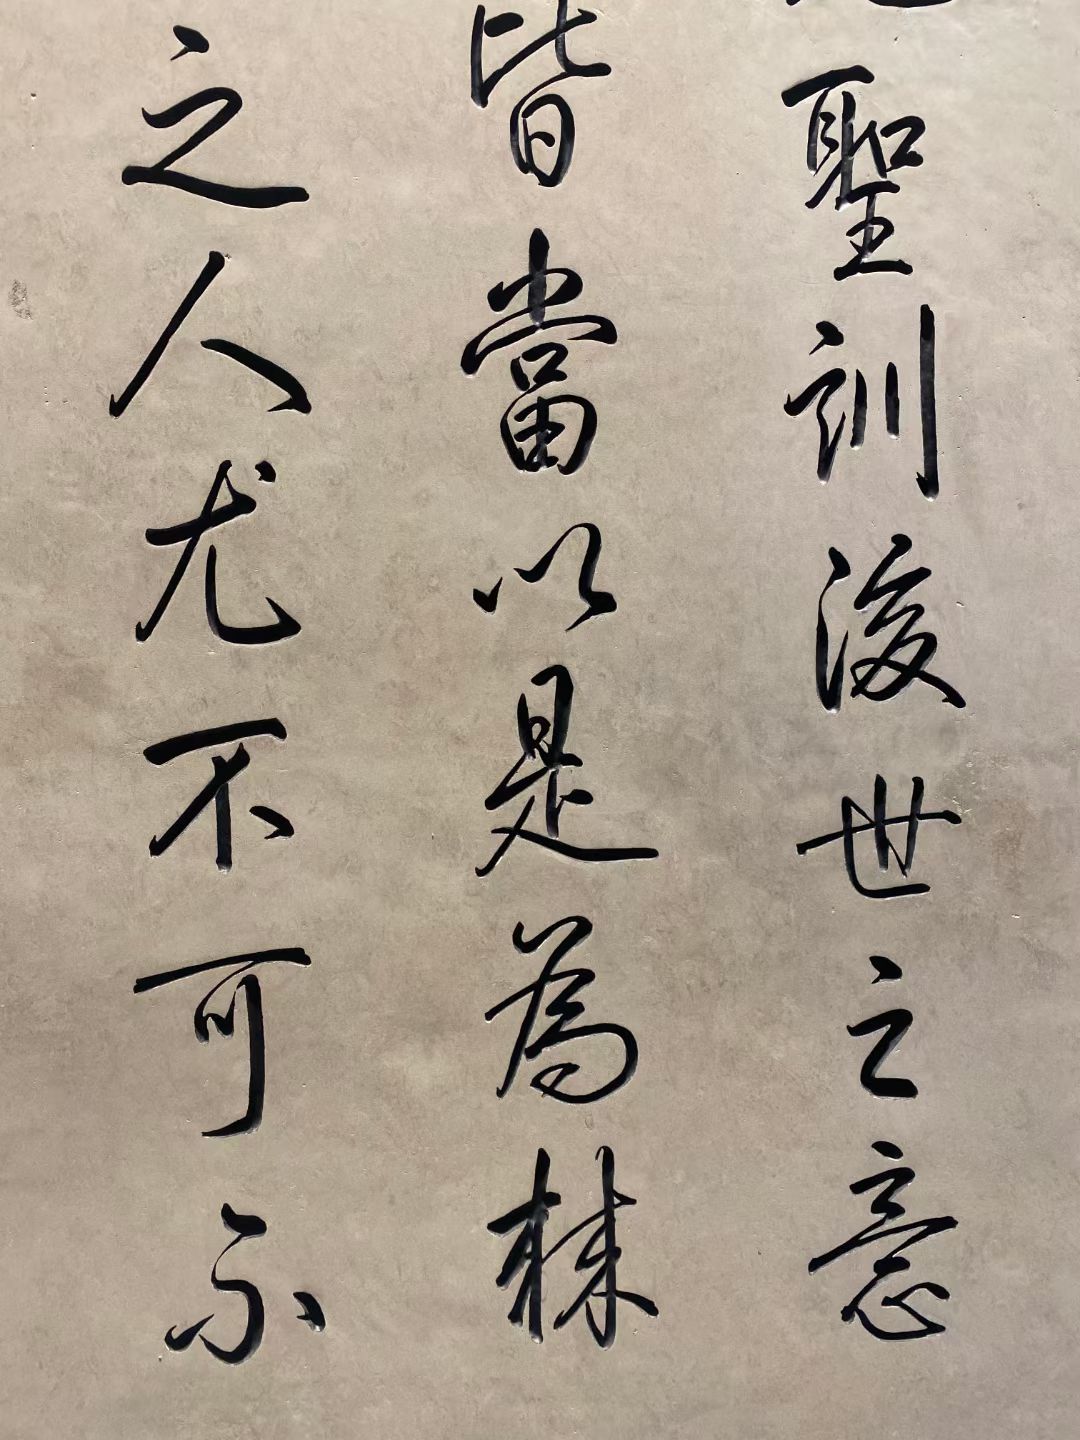 聖訓後世之意
皆當以是為
之人尤不可不